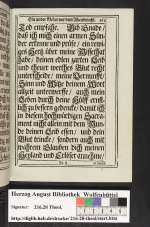 Ein ander Gebet vor dem Abendmahl. 
Tod empfahe. Gib Gnade/
daß ich mich einen armen Sün-
der erkenne und prüfe/
Hertz über meine
habe/ deinen edlen zarten Leib
und theuer werthes Blut recht
unterscheide/ meine Vernunfft/
Sinn und Witze deinem Wort
allzeit unterwerffe/ auch mein
Leben durch deine Hülff ernst-
lich zu bessern gedencke/ damit ich
in diesem hochwürdigen Sacra-
ment nicht allein mit dem Mun-
de deinen Leib essen/ und dein
Blut trincke/ sondern auch im
wahrem Glauben dich meinen
Heyland und Erlöser annehme/
Herzog August Bibliothek Wolfenbüttel
Signatur: 216.28 Theol.
http://diglib.hab.de/drucke/216-28-theol/start.htm